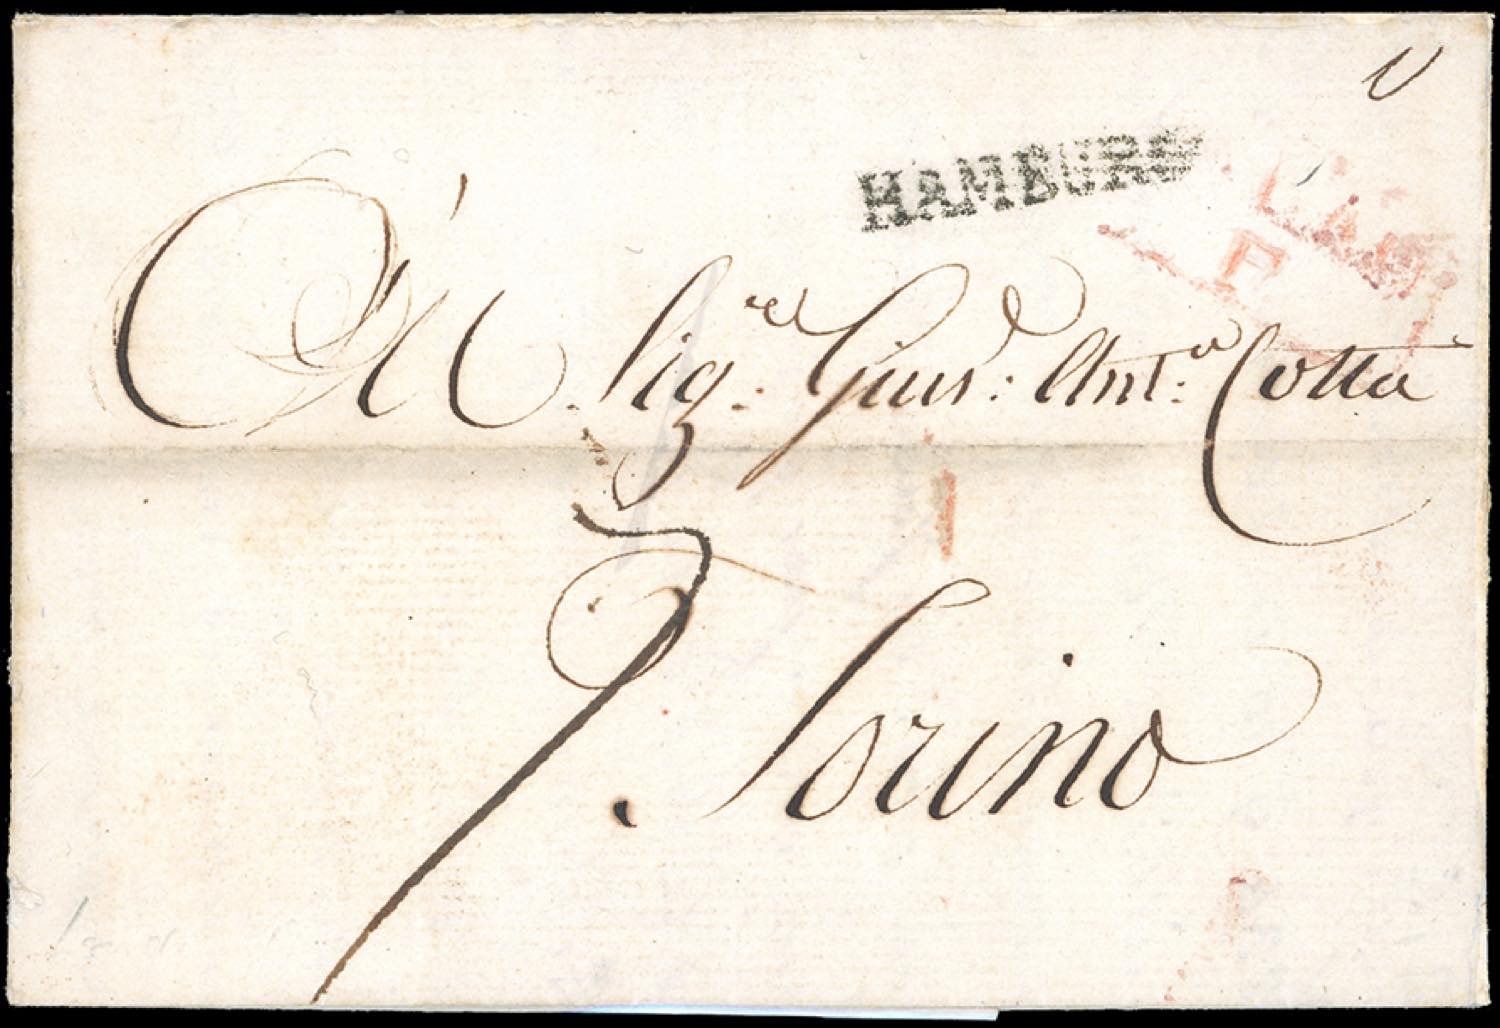 HAMBURG
Al Sig.re Gius. Ant.o Cotta
Torino